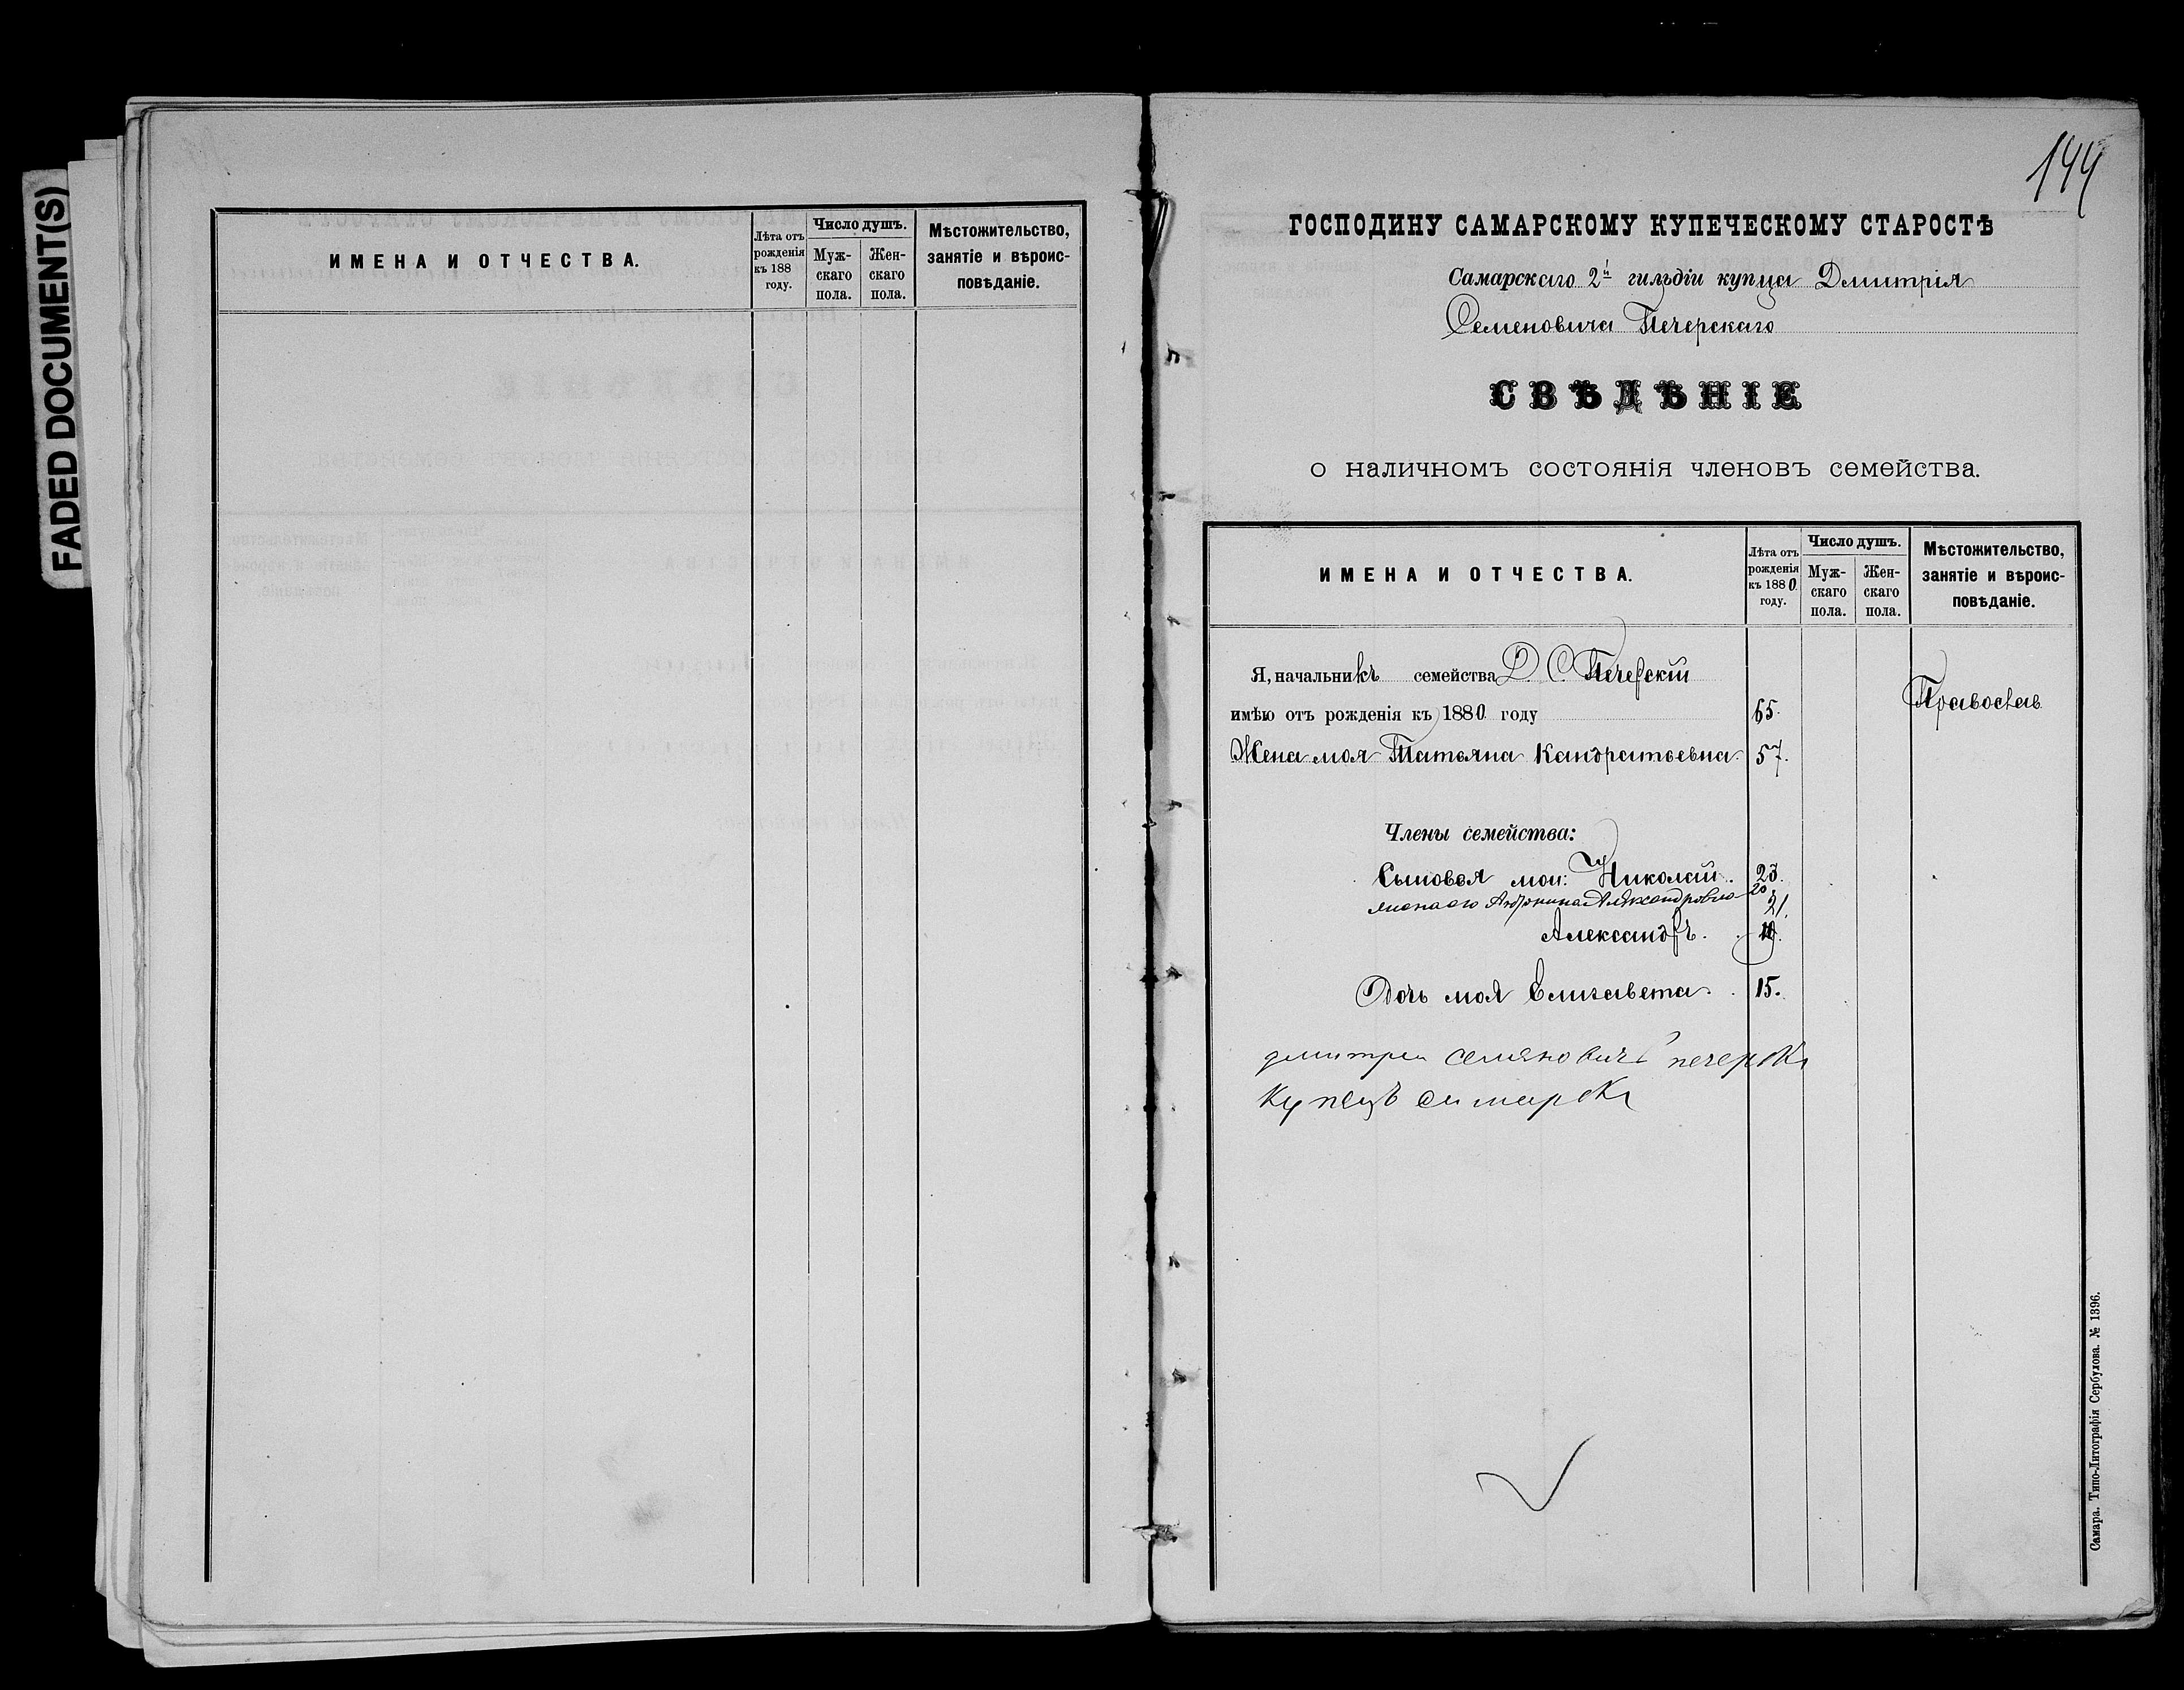 FADED DOCUMENT(S)
ИМЕНА И ОТЧЕСТВА.
Лѣта отъ рожденія къ 188 году.
Число душъ.
Муж- скаго пола.
Жен- скаго пола.
Мѣстожительство, занятіе и вѣроис- повѣданіе.
144
ГОСПОДИНУ САМАРСКОМУ КУПЕЧЕСКОМУ СТАРОСТѢ
Самарскаго 2й гильдіи купца Дмитрія
Семеновича Печерскаго
СВѢДѢНІЕ
о наличномъ состоянія членовъ семейства.
ИМЕНА И ОТЧЕСТВА.
Лѣта отъ рожденія къ 1880 году.
Число душъ.
Муж- скаго пола.
Жен- скаго пола.
Мѣстожительство, занятіе и вѣроис- повѣданіе.
Я, начальникъ семейства Д. С. Печерскій
имѣю отъ рожденія къ 1880 году 65. Православ
Жена моя Татьяна Кандратьевна. 57.
Члены семейства:
Сыновья мои: Николай. 23.
Александровна 20
21.
Александръ. 19.
Дочь моя Елизавета. 15.
дмитреи семяновичъ печерски
купецъ самарски
Самара. Типо-Литографія Сербулова. № 1396.